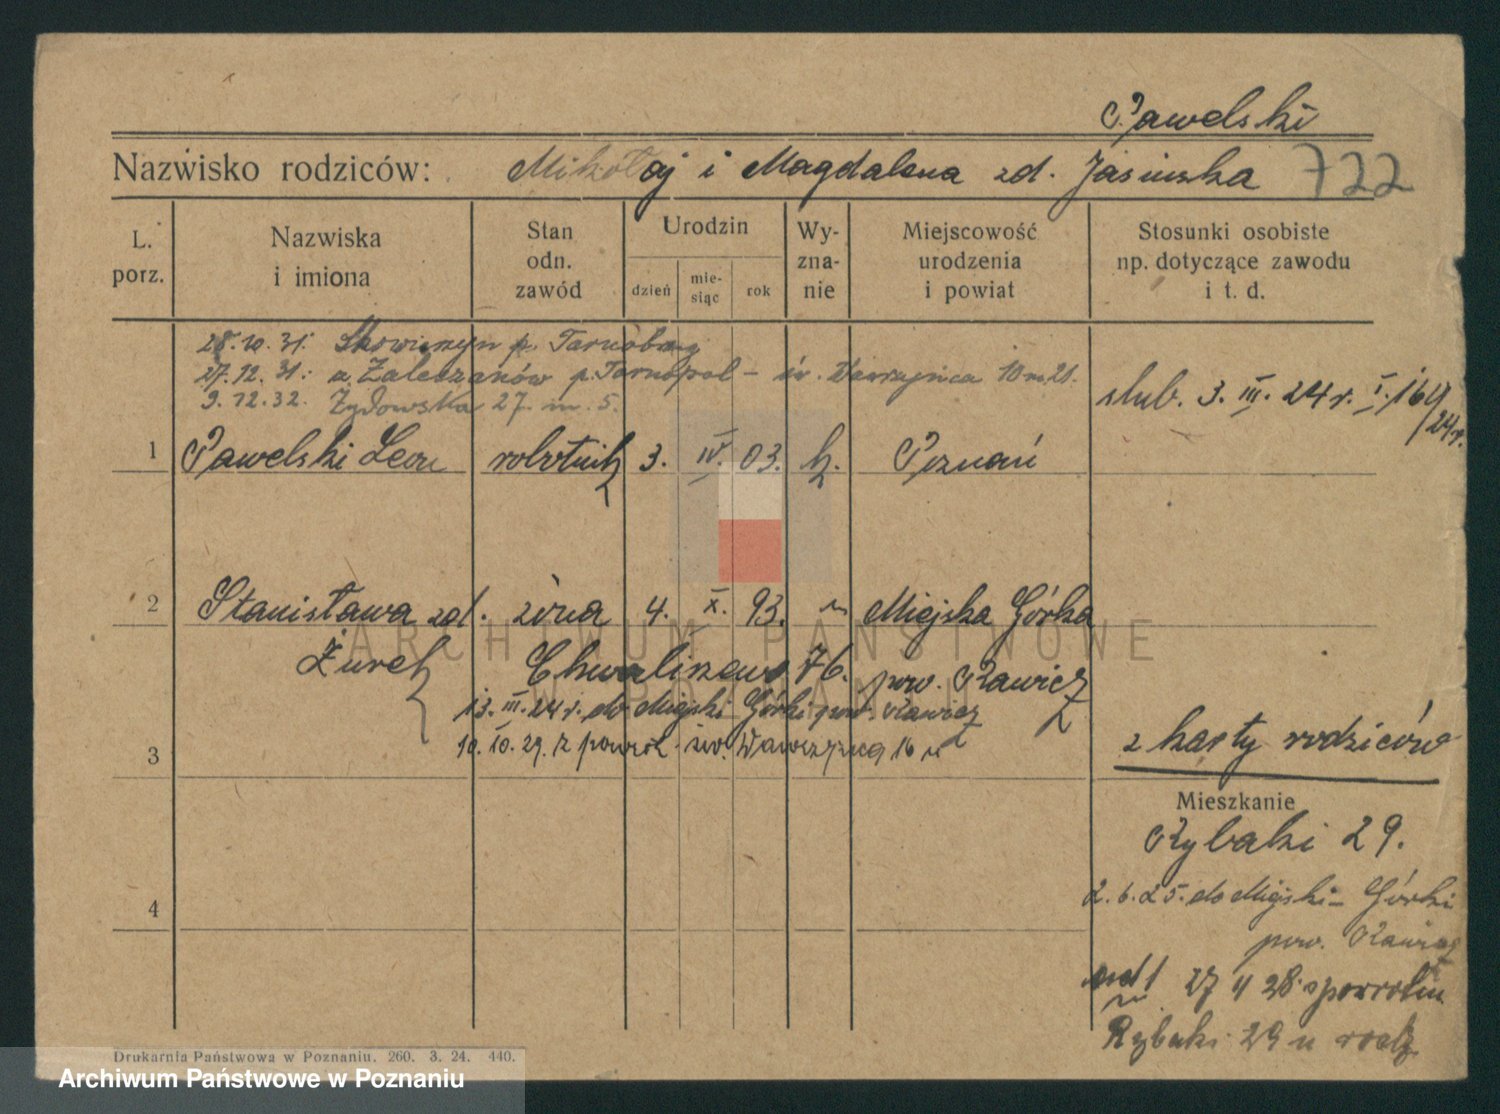 Pawelski
Nazwisko rodziców: Mikołaj i Magdalena zd. Jasińska 722
L. porz.
Nazwiska i imiona
Stan odn. zawód
Urodzin
dzień
mie-
siąc
rok
Wy-
zna-
nie
Miejscowość urodzenia i powiat
Stosunki osobiste np. dotyczące zawodu i t. d.
28.10.31. Skowierzyn p. Tarnobrzeg
27.12.31. a. Zaleszanów p. Tarnopol – św. Wawrzyńca 10 m. 21.
9.12.32. Żydowska 27. m. 5.
ślub. 3. III. 24 r. I. 164/24 r.
1 Pawelski Leon robotnik 3. IV. 03. k. Poznań
2 Stanisława zd. żona 4. X. 93. " Miejska Górka
Żurek Chwaliszewo 76. pow. Rawicz
13. III. 24 r. do Miejski Górki pow. Rawicz
10. 10. 29. z powrot. św. Wawrzyńca 16
3
z karty rodziców
Mieszkanie
Rybaki 29.
2. 6. 25. do Miejski-Górki
pow. Rawicz
4
27 4 28 spowrotem
Rybaki 29 u rodz.
Drukarnia Państwowa w Poznaniu. 260. 3. 24. 440.
ARCHIWUM PAŃSTWOWE
W POZNANIU
Archiwum Państwowe w Poznaniu